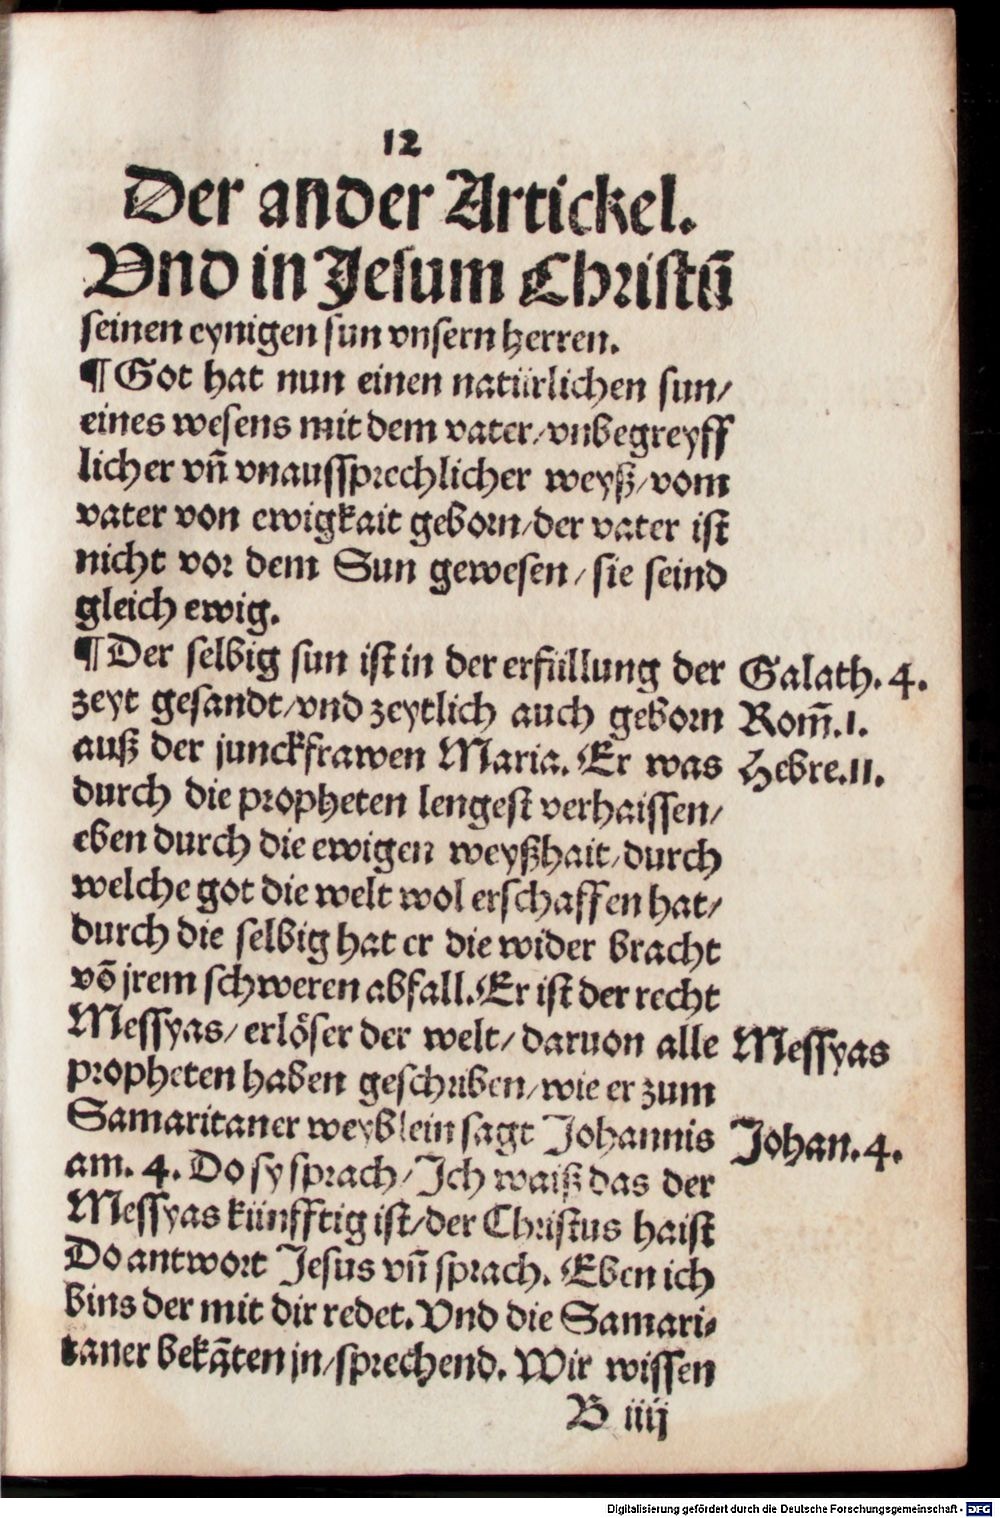 12
Der ander Artickel.
Vnd in Jesum Christū
seinen eynigen sun vnsern herren.
¶ Got hat nun einen natürlichen sun/
eines wesens mit dem vater/vnbegreyff
licher vñ vnaussprechlicher weyß/vom
vater von ewigkait geborn/der vater ist
nicht vor dem Sun gewesen/sie seind
gleich ewig.
¶ Der selbig sun ist in der erfüllung der Galath.4.
zeyt gesandt/vnd zeytlich auch geborn Rom̄.1.
auß der junckfrawen Maria. Er was Hebre.11.
durch die propheten lengest verhaissen/
eben durch die ewigen weyßhait/durch
welche got die welt wol erschaffen hat/
durch die selbig hat er die wider bracht
võ jrem schweren abfall.Er ist der recht
Messyas/erlöser der welt/daruon alle Messyas
propheten haben geschriben/wie er zum
Samaritaner weyblein sagt Johannis Johan.4.
am.4.Do sy sprach/Ich waiß das der
Messyas künfftig ist/der Christus haist
Do antwort Jesus vñ sprach. Eben ich
bins der mit dir redet.Vnd die Samari⸗
taner bekāten jn/sprechend. Wir wissen
B iiij
Digitalisierung gefördert durch die Deutsche Forschungsgemeinschaft - DFG